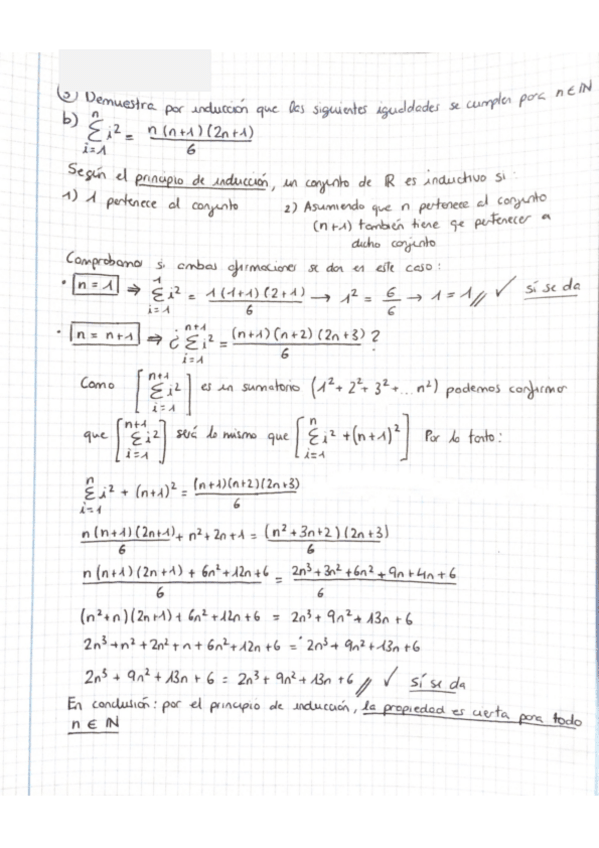 ③ Demuestra por inducción que las siguientes igualdades se cumplen para n ∈ ℕ
b) ∑_{i=1}^{n} i² = n(n+1)(2n+1)/6
Según el principio de inducción, un conjunto de R es inductivo si:
1) 1 pertenece al conjunto 2) Asumiendo que n pertenece al conjunto
(n+1) también tiene qe pertenecer a
dicho conjunto
Comprobamos si ambas afirmaciones se dan en este caso:
• n = 1 ⇒ ∑_{i=1}^{1} i² = 1(1+1)(2+1)/6 → 1² = 6/6 → 1 = 1 // ✓ sí se da
• n = n+1 ⇒ ¿ ∑_{i=1}^{n+1} i² = (n+1)(n+2)(2n+3)/6 ?
Como [∑_{i=1}^{n+1} i²] es un sumatorio (1² + 2² + 3² + ... n²) podemos confirmar
que [∑_{i=1}^{n+1} i²] será lo mismo que [∑_{i=1}^{n} i² + (n+1)²] Por lo tanto:
∑_{i=1}^{n} i² + (n+1)² = (n+1)(n+2)(2n+3)/6
n(n+1)(2n+1)/6 + n² + 2n + 1 = (n² + 3n + 2)(2n+3)/6
n(n+1)(2n+1) + 6n² + 12n + 6/6 = 2n³ + 3n² + 6n² + 9n + 4n + 6/6
(n² + n)(2n+1) + 6n² + 12n + 6 = 2n³ + 9n² + 13n + 6
2n³ + n² + 2n² + n + 6n² + 12n + 6 = 2n³ + 9n² + 13n + 6
2n³ + 9n² + 13n + 6 = 2n³ + 9n² + 13n + 6 // ✓ sí se da
En conclusión: por el principio de inducción, la propiedad es cierta para todo
n ∈ ℕ